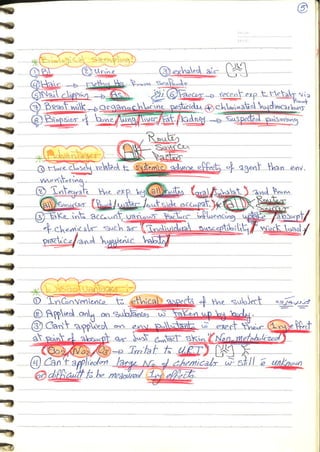 Biological Sampling
① Bl. ② Urine ③ exhaled air
④ Hair → from
⑤ Nail clipping → As ⑥ Faeces → recent exp. to Metals via
⑦ Breast milk → Organochlorine pesticides & chlorinated hydrocarbons
⑧ Biopsies of bone/lung/liver/fat/kidney → suspected poisoning
Routes
Source
Factor
Advantages
① More closely related to systemic adverse effects of agent than env.
monitoring.
② Integrate the exp. by all routes (oral/inhalat.) and from
all sources (food/water/outside occupat.)
③ Take into account various factors influencing uptake/absorpt.
of chemicals such as (Individual susceptibility/work load/
practice/and hygienic habits)
Disadvantages
① Inconvenience to ethical aspects of the subject
② Applied only on substances w taken up by body.
③ Can't applied on env. pollutants w exert their Iry effect
at point of absorpt. or just contact skin (Non-metabolized)
→ Irritat. to URT
④ Can't applied on large No of chemicals w still is unknown
or difficult to be measured Iry effects